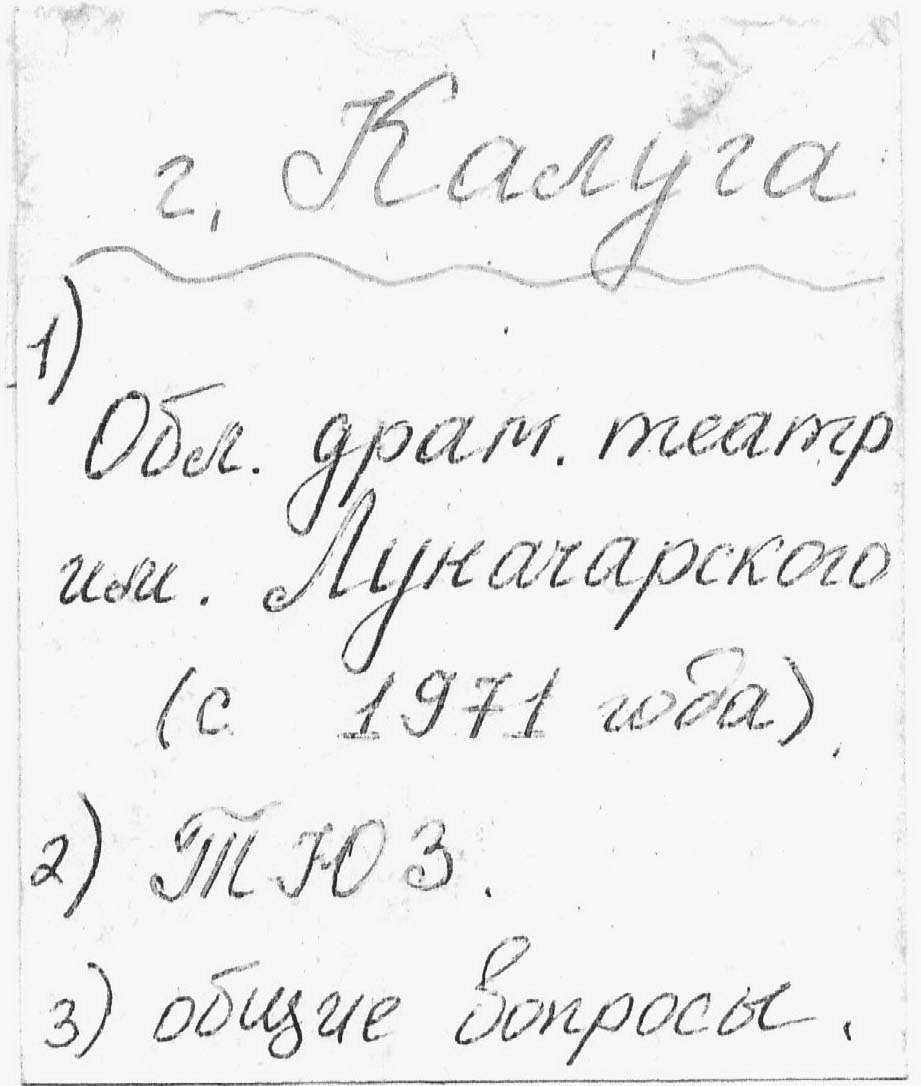 г. Калуга
1)
Обл. драм. театр
им. Луначарского
(с 1971 года).
2) ТЮЗ.
3) общие вопросы.